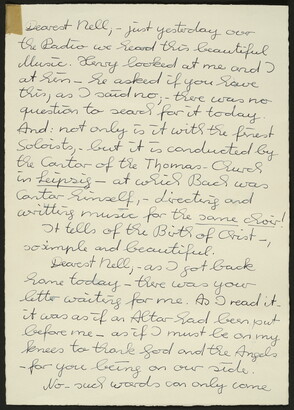 Dearest Nell,- just yesterday over
the Radio we heard this beautiful
Music. Henry looked at me and I
at him - he asked if you have
this, as I said no,- there was no
question to search for it today.
And: not only is it with the finest
Soloists,- but it is conducted by
the Cantor of the Thomas-Church
in Leipzig - at which Bach was
Cantor himself,- directing and
writting music for the same choir!
It tells of the Birth of Christ -,
so simple and beautiful.
Dearest Nell,- as I got back
home today - there was your
letter waiting for me. As I read it -
it was as if an Altar had been put
before me - as if I must be on my
knees to thank God and the Angels
- for you being on our side.
No - such words can only come